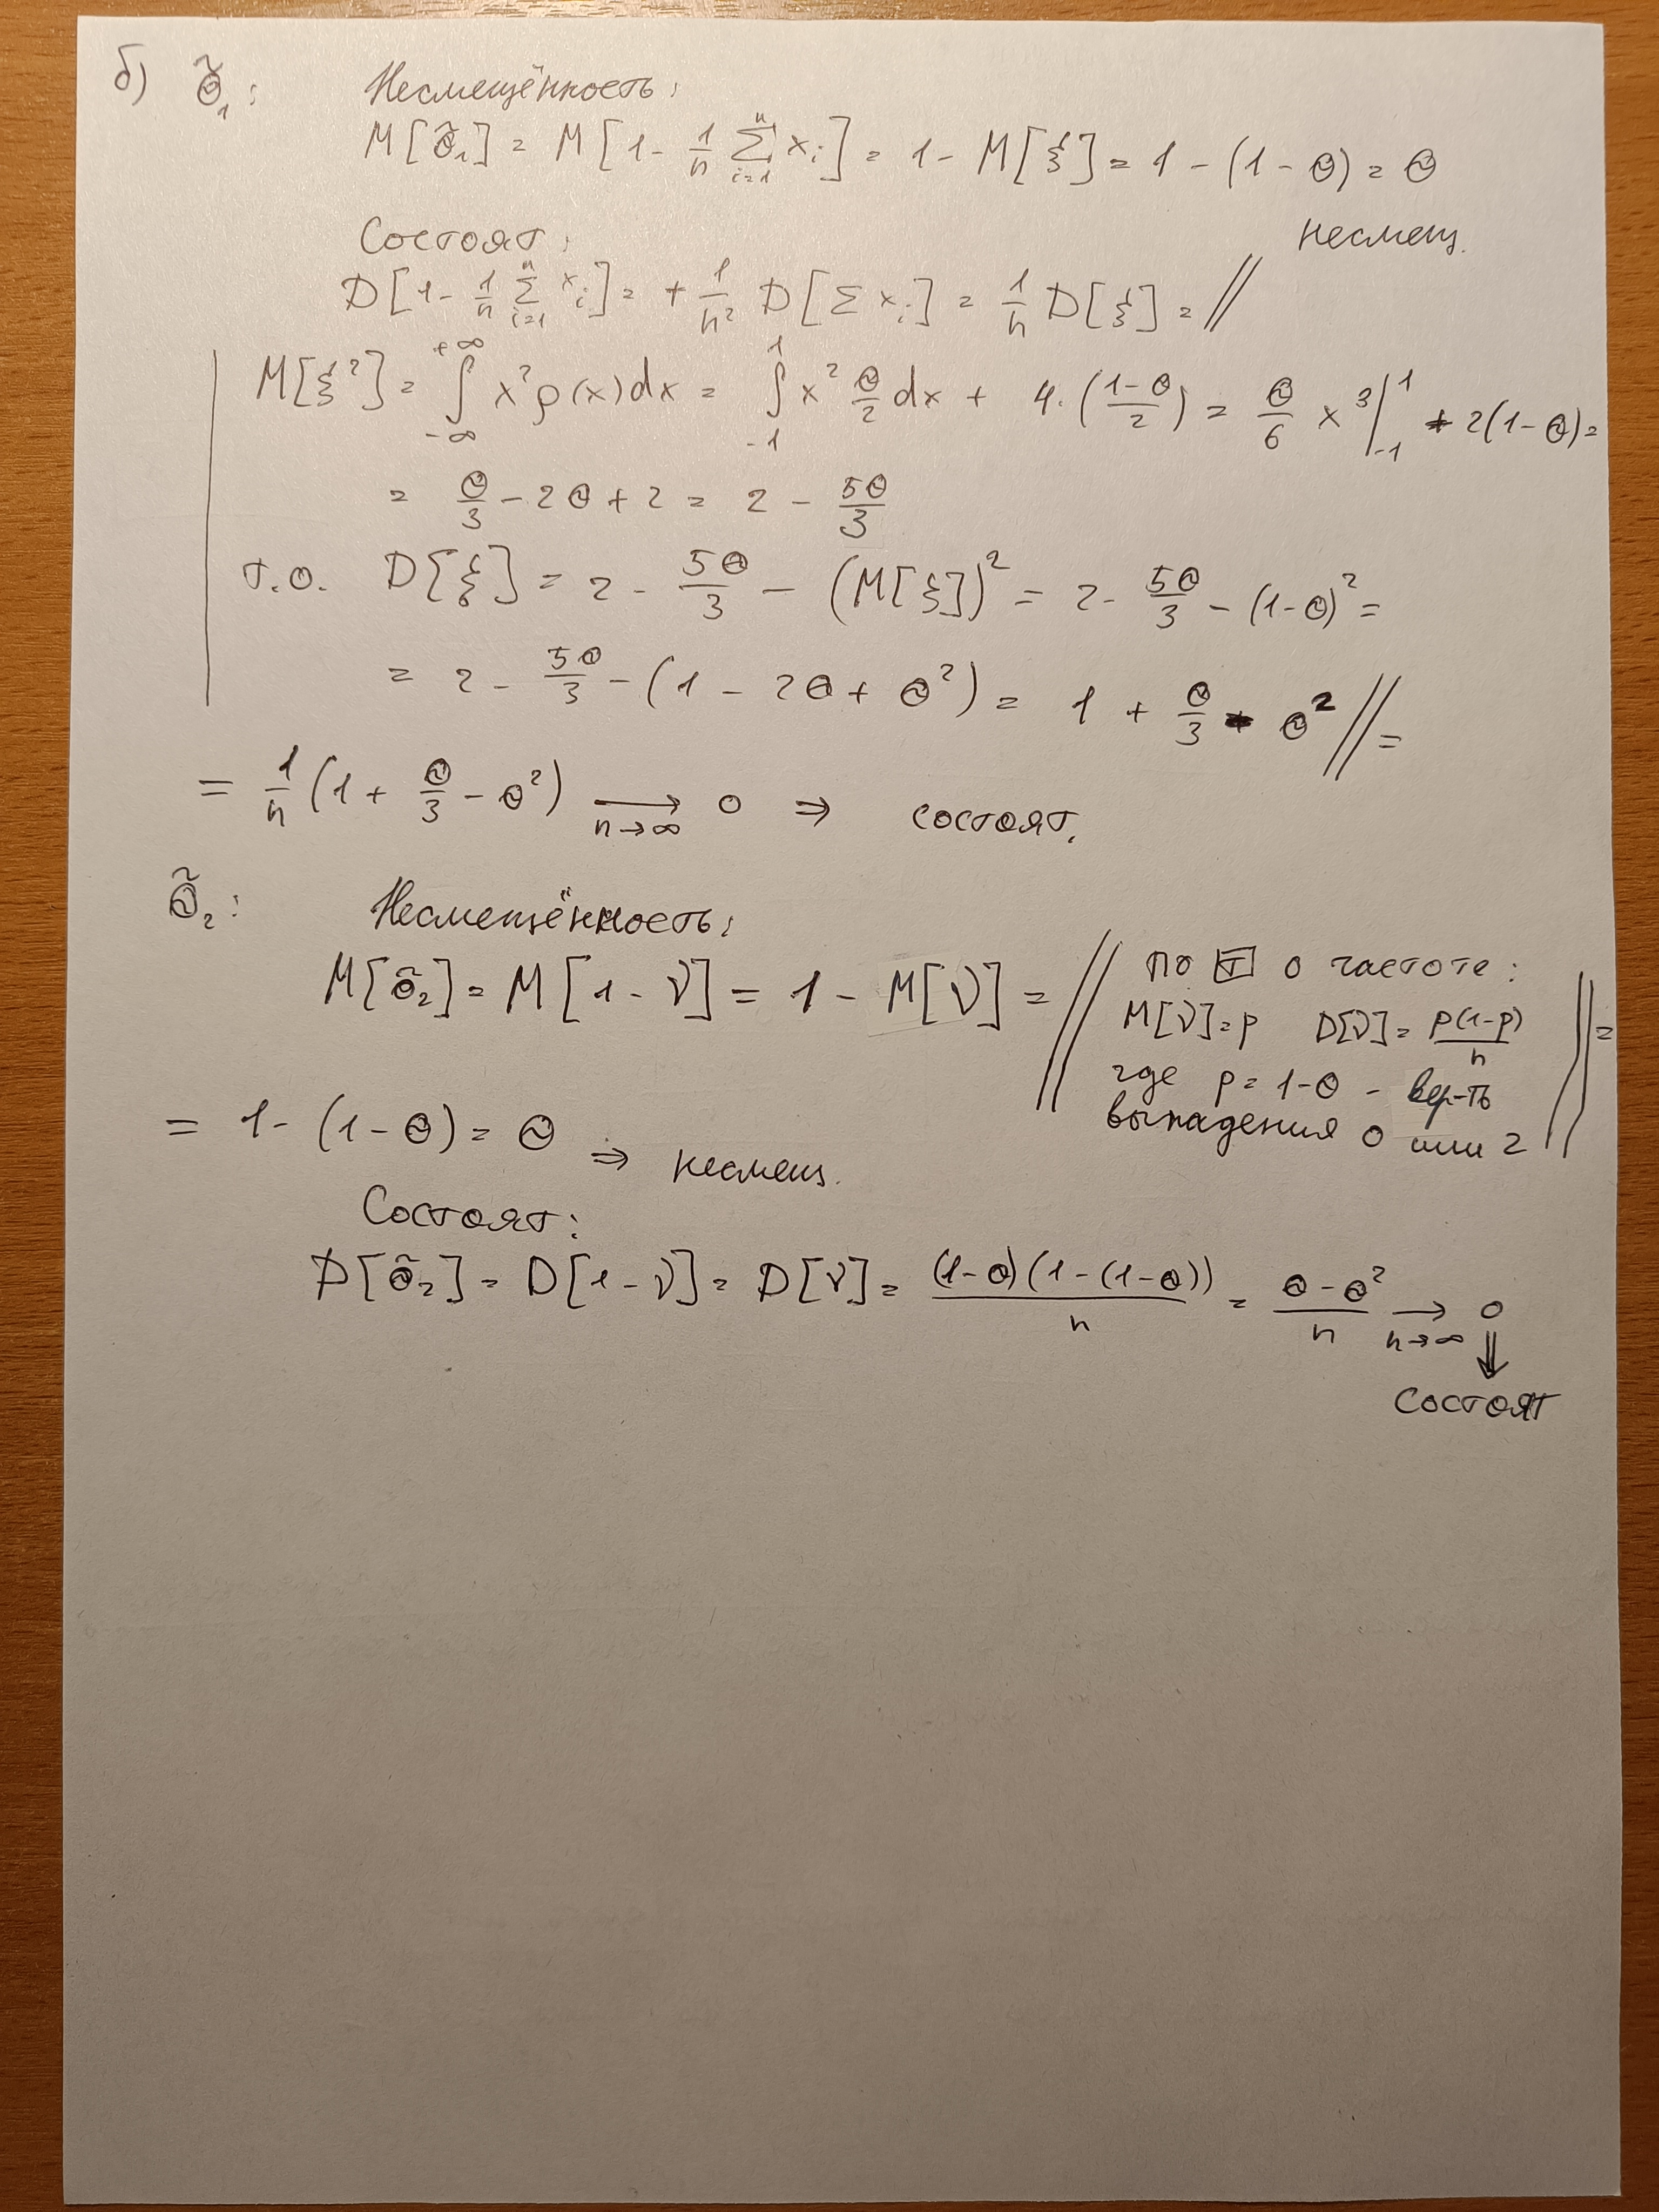 б) θ̃₁: Несмещённость:
M[θ̃₁] = M[1 - 1/n ∑ᵢ₌₁ⁿ xᵢ] = 1 - M[ξ] = 1 - (1 - θ) = θ
Состоят: несмещ.
D[1 - 1/n ∑ᵢ₌₁ⁿ xᵢ] = + 1/n² D[∑ xᵢ] = 1/n D[ξ] = //
M[ξ²] = ∫₋∞⁺∞ x² ρ(x) dx = ∫₋₁¹ x² θ/2 dx + 4·((1-θ)/2) = θ/6 x³ |₋₁¹ + 2(1-θ) =
= θ/3 - 2θ + 2 = 2 - 5θ/3
т.о. D[ξ] = 2 - 5θ/3 - (M[ξ])² = 2 - 5θ/3 - (1-θ)² =
= 2 - 5θ/3 - (1 - 2θ + θ²) = 1 + θ/3 - θ² // =
= 1/n (1 + θ/3 - θ²) ⟶ n→∞ 0 ⇒ состоят.
θ̃₂: Несмещённость:
M[θ̃₂] = M[1 - ν] = 1 - M[ν] = // по T о частоте:
M[ν] = p D[ν] = p(1-p)/n // =
где p = 1-θ - вер-ть
выпадения 0 или 2
= 1 - (1 - θ) = θ ⇒ несмещ.
Состоят:
D[θ̃₂] = D[1 - ν] = D[ν] = (1-θ)(1-(1-θ))/n = (θ - θ²)/n ⟶ n→∞ 0
⇓
состоят